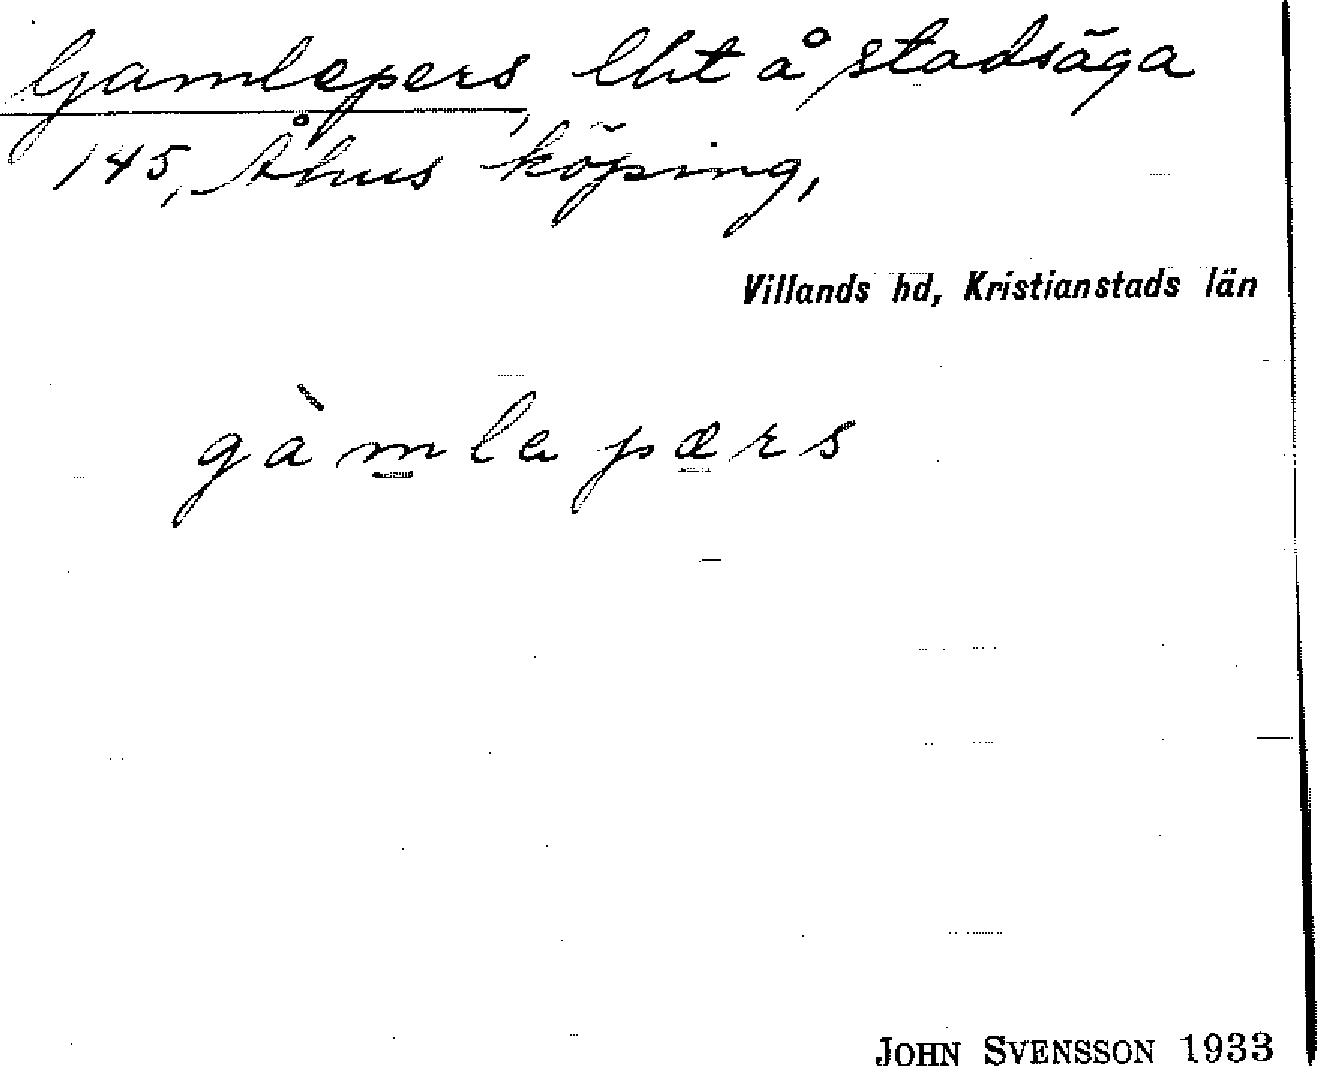 Gamlepers, lht å stadsäga
145, Åhus köping,
Villands hd, Kristianstads län
gàmlapærs
JOHN SVENSSON 1933